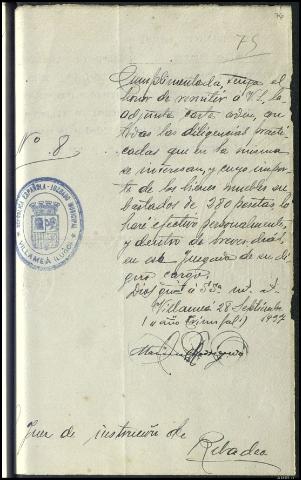 75
Cumplimentada, tengo el
honor de remitir a V.S. la
adjunta carta orden, con
todas las diligencias practi
cadas que en la misma
se interesan, y cuyo impor
te de los bienes muebles su
bastados de 280 pesetas lo
haré efectivo personalmente,
y dentro de breves dias,
en ese juzgado de su di
gno cargo.
Dios gue a SSª m. a.
Villameá 28 Septiembre
(II año triunfal) 1937
Nº. 8
REPUBLICA ESPAÑOLA - JUZGADO MUNICIPAL
VILLAMEÁ (LUGO)
Juez de instrucción de
Ribadeo